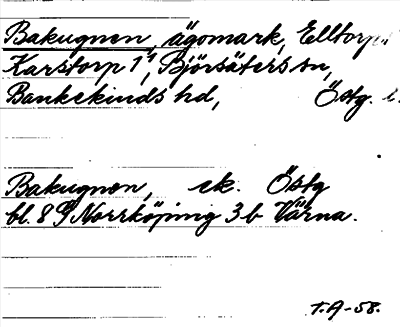 Bakugnen, ägomark, Elltorp
Karstorp 1¹, Björsäters sn,
Bankekinds hd, Östg. l.
Bakugnen, ek. Östg
bl. 8 9 Norrköping 3 b Värna.
T.A-58.